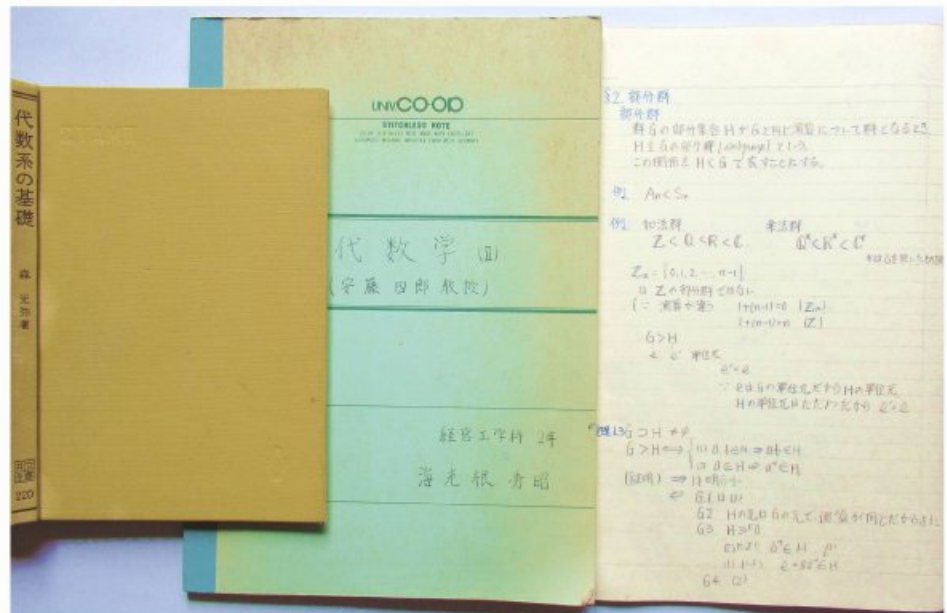 代数系の基礎
森 光弥著
220
UNIV.CO-OP
STITCHLESS NOTE
代数学 (Ⅱ)
(安藤四郎教授)
経営工学科 2年
§2. 部分群
部分群
群Gの部分集合HがGと同じ演算について群となるとき
HをGの部分群(subgroup)という
この関係を H<G で表すことにする。
例1 An<Sn
例2 加法群 乗法群
Z<Q<R<C. Q*<R*<C*
*は0を除いた
Zn={0,1,2,…,n-1}
は Zの部分群ではない
(∵ 演算が違う 1+(n-1)=0 (Zn)
1+(n-1)=n (Z)
G>H
e e' 単位元
e'=e
∵ eはGの単位元だからHの単位元
Hの単位元はただ1つだから e'=e
G⊃H≠φ
G>H⟺{(1) a,b∈H⇒ab∈H
(2) a∈H⇒a⁻¹∈H
(証明) ⇒は明らか
⇐ G1 は(1)
G2 Hの元はGの元で、演算が同じだから
G3 H∋a
(2)より a⁻¹∈H
e=aa⁻¹∈H
G4 (2)